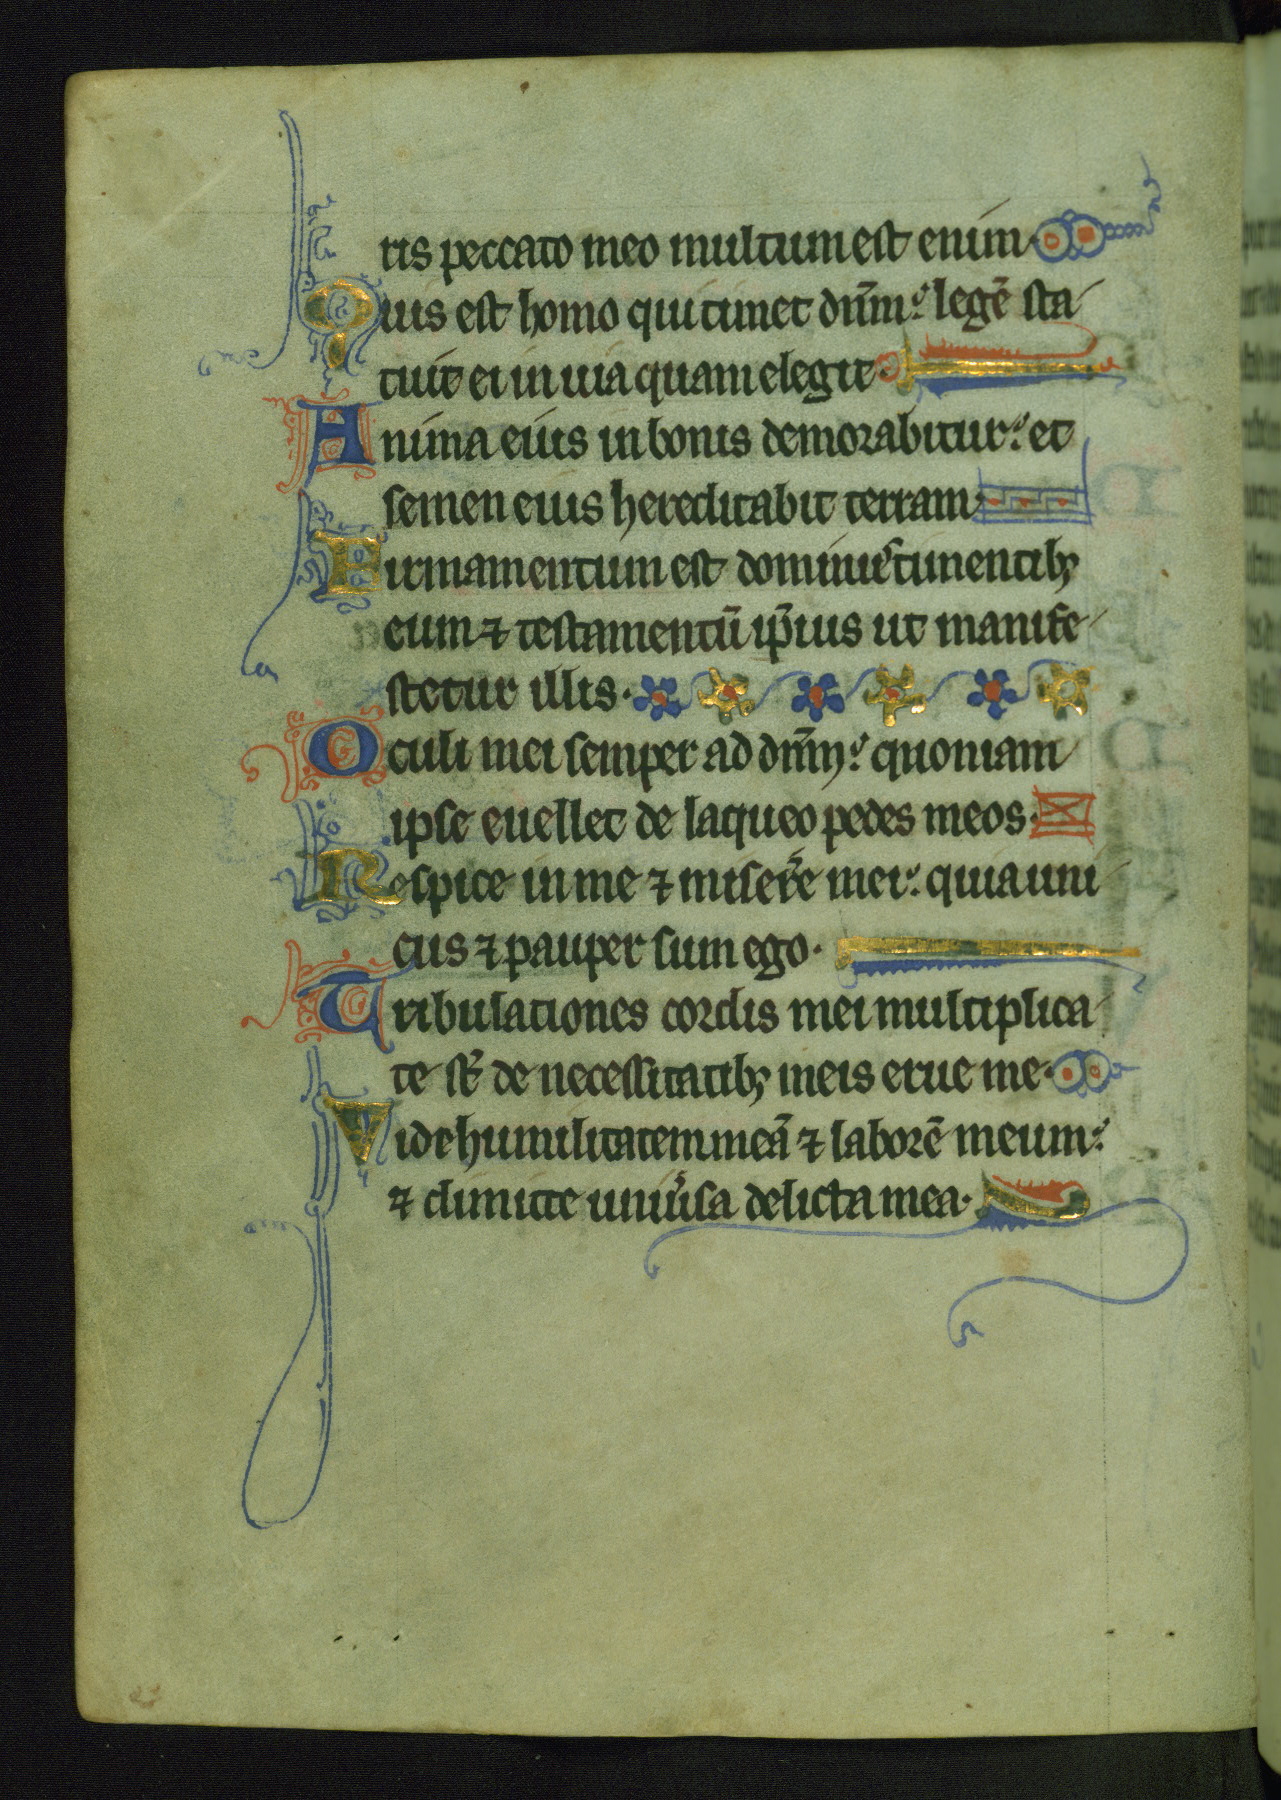 ris peccato meo multum est enim
Quis est homo qui timet dñm: legē sta
tuit ei in uia quam elegit.
Anima eius in bonis demorabitur: et
semen eius hereditabit terram.
Firmamentum est dominus timentibꝫ
eum ⁊ testamentū ip̄ius ut manife
stetur illis.
Oculi mei semper ad dñm: quoniam
ipse euellet de laqueo pedes meos.
Respice in me ⁊ miserē mei: quia uni
cus ⁊ pauper sum ego.
Tribulationes cordis mei multiplica
te st̄ de necessitatibꝫ meis erue me.
Vide humilitatem meā ⁊ laborē meum:
⁊ dimitte uniu̾sa delicta mea.